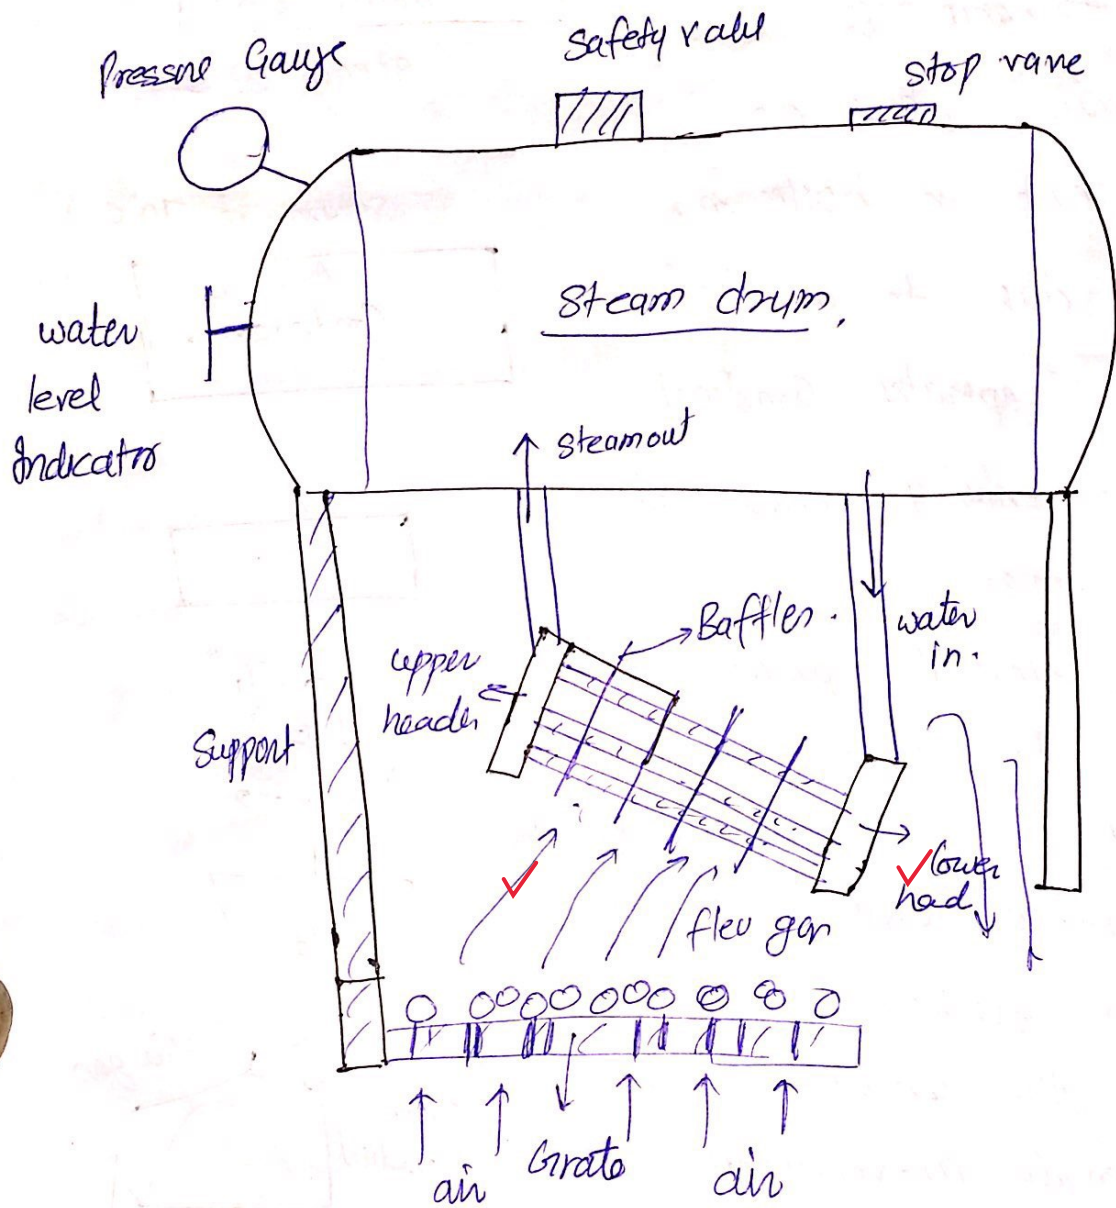 Pressne Gauge
Safety valve
Stop vane
water
level
Indicator
Steam drum.
Steamout
Baffles.
water
in.
upper
header
Support
lower
head
fleu gas
Grate
air
air